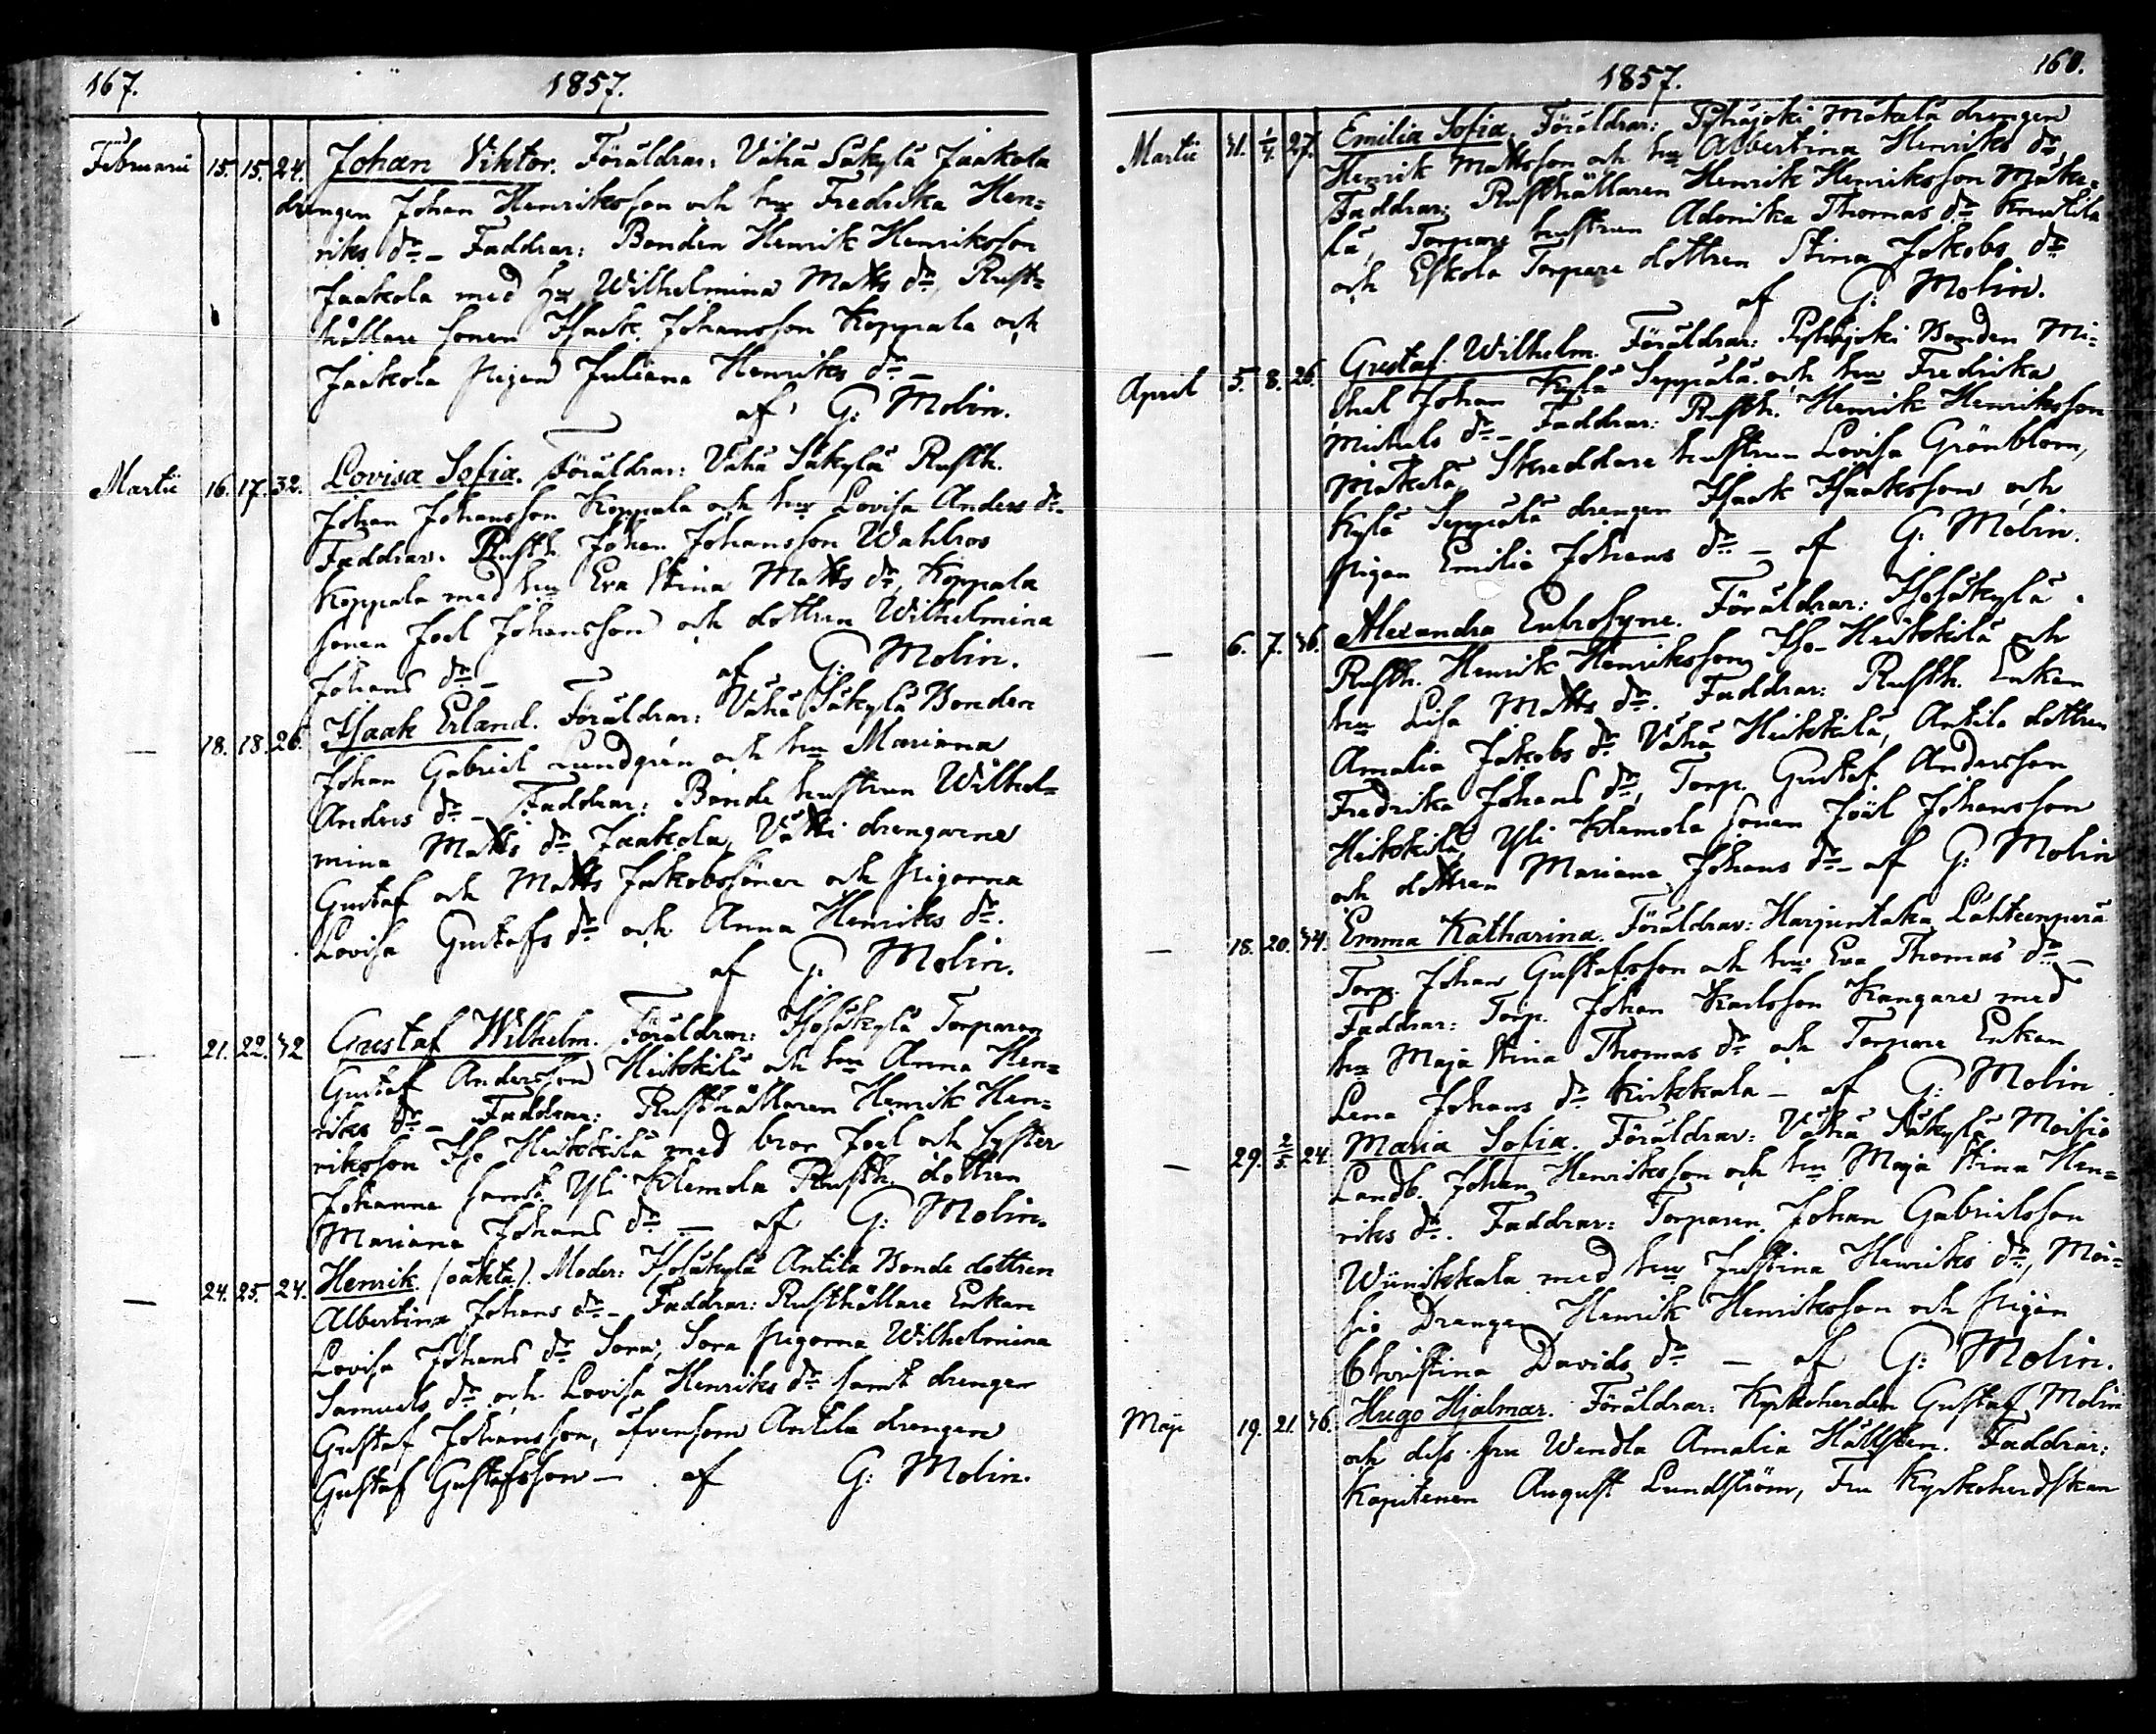 167. 1857.
Februarii 15. 15. 24. Johan Viktor. Föräldrar: Vähä Säkylä Jaakola
drengen Johan Henriksson och hu Fredrika Hen=
riks dr – Faddrar: Bonden Henrik Henriksson
Jaakola med hu Wilhelmina Matts dr, Rust=
hållare sonen Isack Johansson Koppala och
Jaakola pigan Juliana Henriks dr –
af G: Molin.
Martii 16. 17. 32. Lovisa Sofia. Föräldrar: Vähä Säkylä Rusth.
Johan Johansson Koppala och hu Lovisa Anders dr.
Faddrar: Rusth. Johan Johansson Wahlros
Koppala med hu Eva Stina Matts dr, Koppala
sonen Joel Johansson och dottren Wilhelmina
Johans dr – af G: Molin.
— 18. 18. 26. Isaak Erland. Föräldrar: Vähä Säkylä Bonden
Johan Gabriel Lundgrén och hu Mariana
Anders dr – Faddrar: Bonde hustrun Wilhel=
mina Matts dr Jaakola, Vätti drengarne
Gustaf och Matts Jakobssöner och pigorna
Lovisa Gustafs dr och Anna Henriks dr.
af G: Molin.
— 21. 22. 42 Gustaf Wilhelm. Föräldrar: Isosäkylä Torparen
Gustaf Andersson Heikkilä och hu Anna Hen=
riks dr – Faddrar: Rusthållaren Henrik Hen=
riksson Iso Heikkilä med bror Joel och syster
Johanna samt Yli Klemola Rusth. dottren
Mariana Johans dr – af G: Molin.
— 24. 25. 24. Henrik (oäkta). Moder: Isosäkylä Antila Bonde dottren
Albertina Johans dr – Faddrar: Rusthållare Enkan
Lovisa Johans dr Sora, Sora pigorna Wilhelmina
Samuels dr och Lovisa Henriks dr samt drengen
Gustaf Johansson, äfvensom Antila drengen
Gustaf Gustafsson – af G: Molin.
1857. 168.
Martii 31. 1/4. 27. Emilia Sofia. Föräldrar: Pyhäjoki Mäkelä drengen
Henrik Mattsson och hu Albertina Henriks dr,
Faddrar: Rusthållaren Henrik Henriksson Mäke=
lä, Torpare hustrun Adamika Thomas dr
och Eskola Torpare dottren Stina Jakobs dr
af G: Molin.
April 5. 8. 26. Gustaf Wilhelm. Föräldrar: Pyhäjoki Bonden Mi=
chel Johan Kylä Seppälä och hu Fredrika
Michels dr – Faddrar: Rusth. Henrik Henriksson
Mäkelä, Skreddare hustrun Lovisa Grönblom,
Kylä Seppälä drengen Isack Isaksson och
pigan Emilia Johans dr – af G: Molin.
— 6. 7. 36. Alexandra Eufrosyne. Föräldrar: Isosäkylä
Rusth. Henrik Henriksson Iso-Heikkilä och
hu Lisa Matts dr. Faddrar: Rusth. Enkan
Amalia Jakobs dr Vähä Heikkilä, Antila dottren
Fredrika Johans dr, Torp. Gustaf Andersson
Heikkilä, Yli Klemola sonen Joël Johansson
och dottren Mariana Johans dr – af G: Molin
— 18. 20. 34. Emma Katharina. Föräldrar: Harjuntaka Lähteenperä
Torp. Johan Gustafsson och hu Eva Thomas dr –
Faddrar: Torp. Johan Karlsson Kangare med
hu Maja Stina Thomas dr och Torpare Enkan
Lena Johans dr Kirkkala – af G: Molin.
— 29. 2/5. 24. Maria Sofia. Föräldrar: Vähä Säkylä Moisio
Landb. Johan Henriksson och hu Maja Stina Hen=
riks dr. Faddrar: Torparen Johan Gabrielsson
Wiinikkala med hu Justina Henriks dr, Moi=
sio Drengen Henrik Henriksson och pigan
Christina Davids dr – af G: Molin.
Maji 19. 21. 36. Hugo Hjalmar. Föräldrar: Kyrkoherden Gustaf Molin
och dess fru Wendla Amalia Hällsten. Faddrar:
Kapitenen August Lundström, Fru Kyrkoherdskan